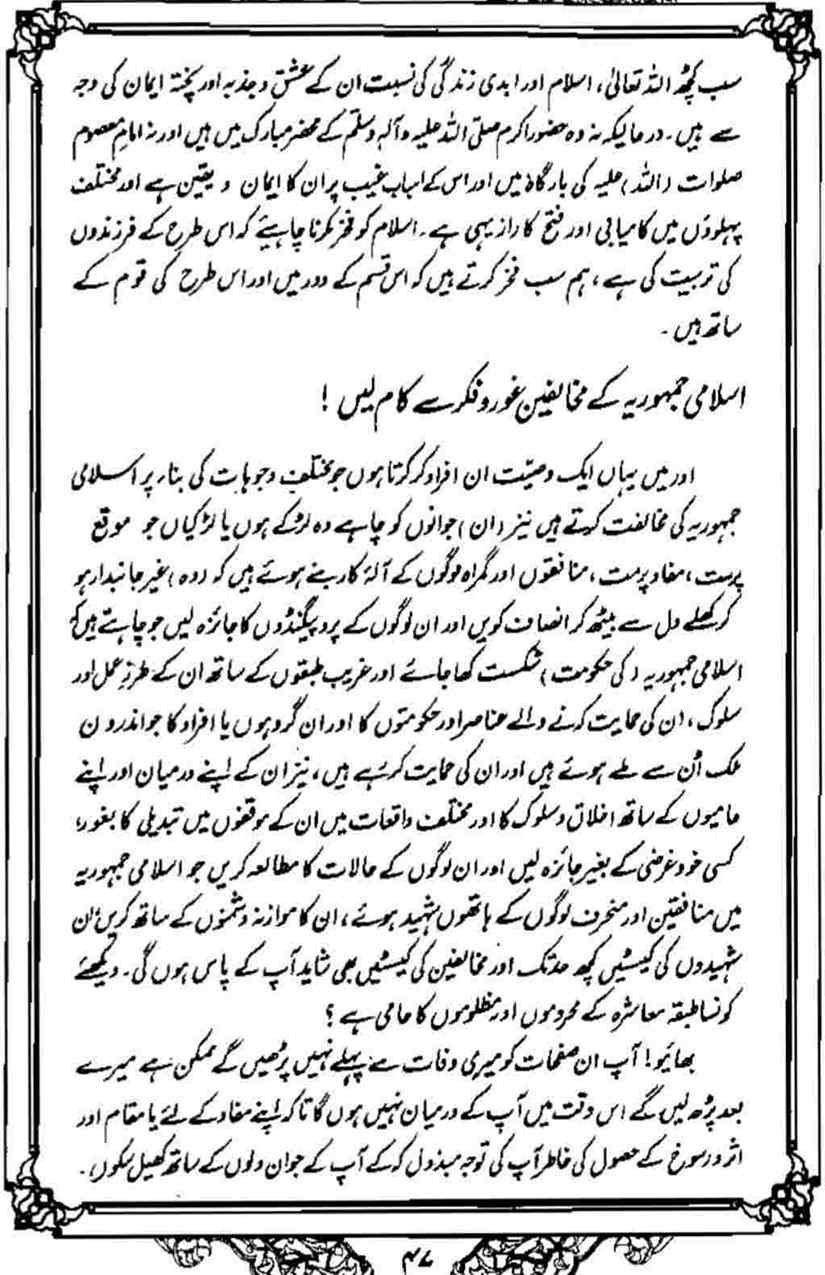 سب کچھ اللہ تعالیٰ، اسلام اور ابدی زندگی کی نسبت ان کے عشق و جذبہ اور پختہ ایمان کی وجہ
سے ہیں۔ درحالیکہ نہ وہ حضور اکرم صلی اللہ علیہ وآلہ وسلم کے محضر مبارک میں ہیں اور نہ امام معصوم
صلوات (اللہ) علیہ کی بارگاہ میں اور اس کے اسباب غیب پر ان کا ایمان و یقین ہے اور مختلف
پہلوؤں میں کامیابی اور فتح کا راز یہی ہے۔ اسلام کو فخر کرنا چاہیئے کہ اس طرح کے فرزندوں
کی تربیت کی ہے، ہم سب فخر کرتے ہیں کہ اس قسم کے دور میں اور اس طرح کی قوم کے
ساتھ ہیں۔
اسلامی جمہوریہ کے مخالفین غور و فکر سے کام لیں!
اور میں یہاں ایک وصیّت ان افراد کر کرتا ہوں جو مختلف وجوہات کی بناء پر اسلامی
جمہوریہ کی مخالفت کرتے ہیں نیز (ان) جوانوں کو چاہے وہ لڑکے ہوں یا لڑکیاں جو موقع
پرست، مفاد پرست، منافقوں اور گمراہ لوگوں کے آلۂ کار بنے ہوئے ہیں کہ (وہ) غیر جانبدار ہو
کر کھلے دل سے بیٹھ کر انصاف کریں اور ان لوگوں کے پروپیگنڈوں کا جائزہ لیں جو چاہتے ہیں کہ
اسلامی جمہوریہ (کی حکومت) شکست کھا جائے اور غریب طبقوں کے ساتھ ان کے طرزِ عمل اور
سلوک، ان کی حمایت کرنے والے عناصر اور حکومتوں کا اور ان گروہوں یا افراد کا جو اندرون
ملک اُن سے ملے ہوئے ہیں اور ان کی حمایت کررہے ہیں، نیز ان کے اپنے درمیان اور اپنے
حامیوں کے ساتھ اخلاق و سلوک کا اور مختلف واقعات میں ان کے موقفوں میں تبدیلی کا بغور،
کسی خود غرضی کے بغیر جائزہ لیں اور ان لوگوں کے حالات کا مطالعہ کریں جو اسلامی جمہوریہ
میں منافقین اور منحرف لوگوں کے ہاتھوں شہید ہوئے، ان کا موازنہ دشمنوں کے ساتھ کریں اُن
شہیدوں کی کیسٹیں کچھ حد تک اور مخالفین کی کیسٹیں بھی شاید آپ کے پاس ہوں گی۔ دیکھئے
کونسا طبقہ معاشرہ کے محروموں اور مظلوموں کا حامی ہے؟
بھائیو! آپ ان صفحات کو میری وفات سے پہلے نہیں پڑھیں گے ممکن ہے میرے
بعد پڑھ لیں گے اس وقت میں آپ کے درمیان نہیں ہوں گا تاکہ اپنے مفاد کے لئے یا مقام اور
اثر و رسوخ کے حصول کی خاطر آپ کی توجہ مبذول کرکے آپ کے جوان دلوں کے ساتھ کھیل سکوں۔
۴۷